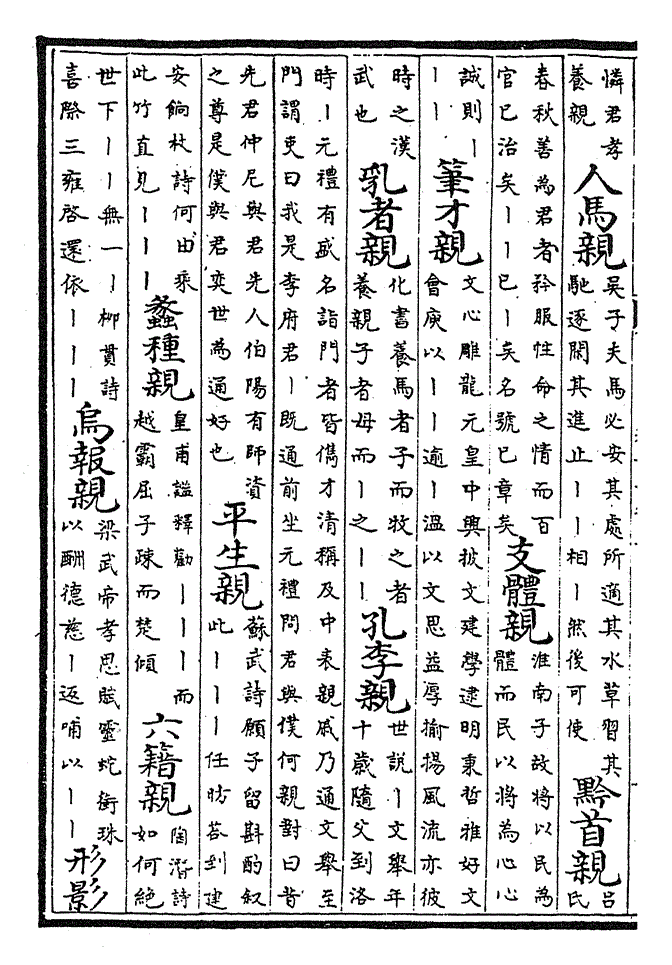 憐君孝養親人馬親吳子夫馬必安其處所適其水草習其馳逐閑其進止丨丨相丨然後可使黔首親吕氏
春秋善為君者矜服性命之情而百官已治矣丨丨已丨矣名號已章矣支體親淮南子故將以民為體而民以將為心心
誠則丨丨丨筆才親文心雕龍元皇中興披文建學逮明東哲雅好文會庾以丨丨逾丨溫以文思益厚揄揚風流亦彼
時之漢武也乳者親化書養馬者子而牧之者養親子者母而丨之丨丨孔李親世說丨文舉年十歲隨父到洛
時丨元禮有盛名詣門者皆儁才清稱及中表親戚乃通文舉至門謂吏曰我是李府君丨既通前坐元禮問君與僕何親對曰昔
先君仲尼與君先人伯陽有師資之尊是僕與君奕世為通好也平生親蘇武詩願子留斟酌叙此丨丨丨任昉荅到建
安餉杖詩何由乘此竹直見丨丨丨蠡種親皇甫謐釋勸丨丨丨而越霸屈子疎而楚傾六籍親陶潛詩如何絕
世下丨丨無一丨柳貫詩喜際三雍啓還依丨丨丨烏報親梁武帝孝思賦靈蛇銜珠以酬德慈丨返哺以丨丨形影